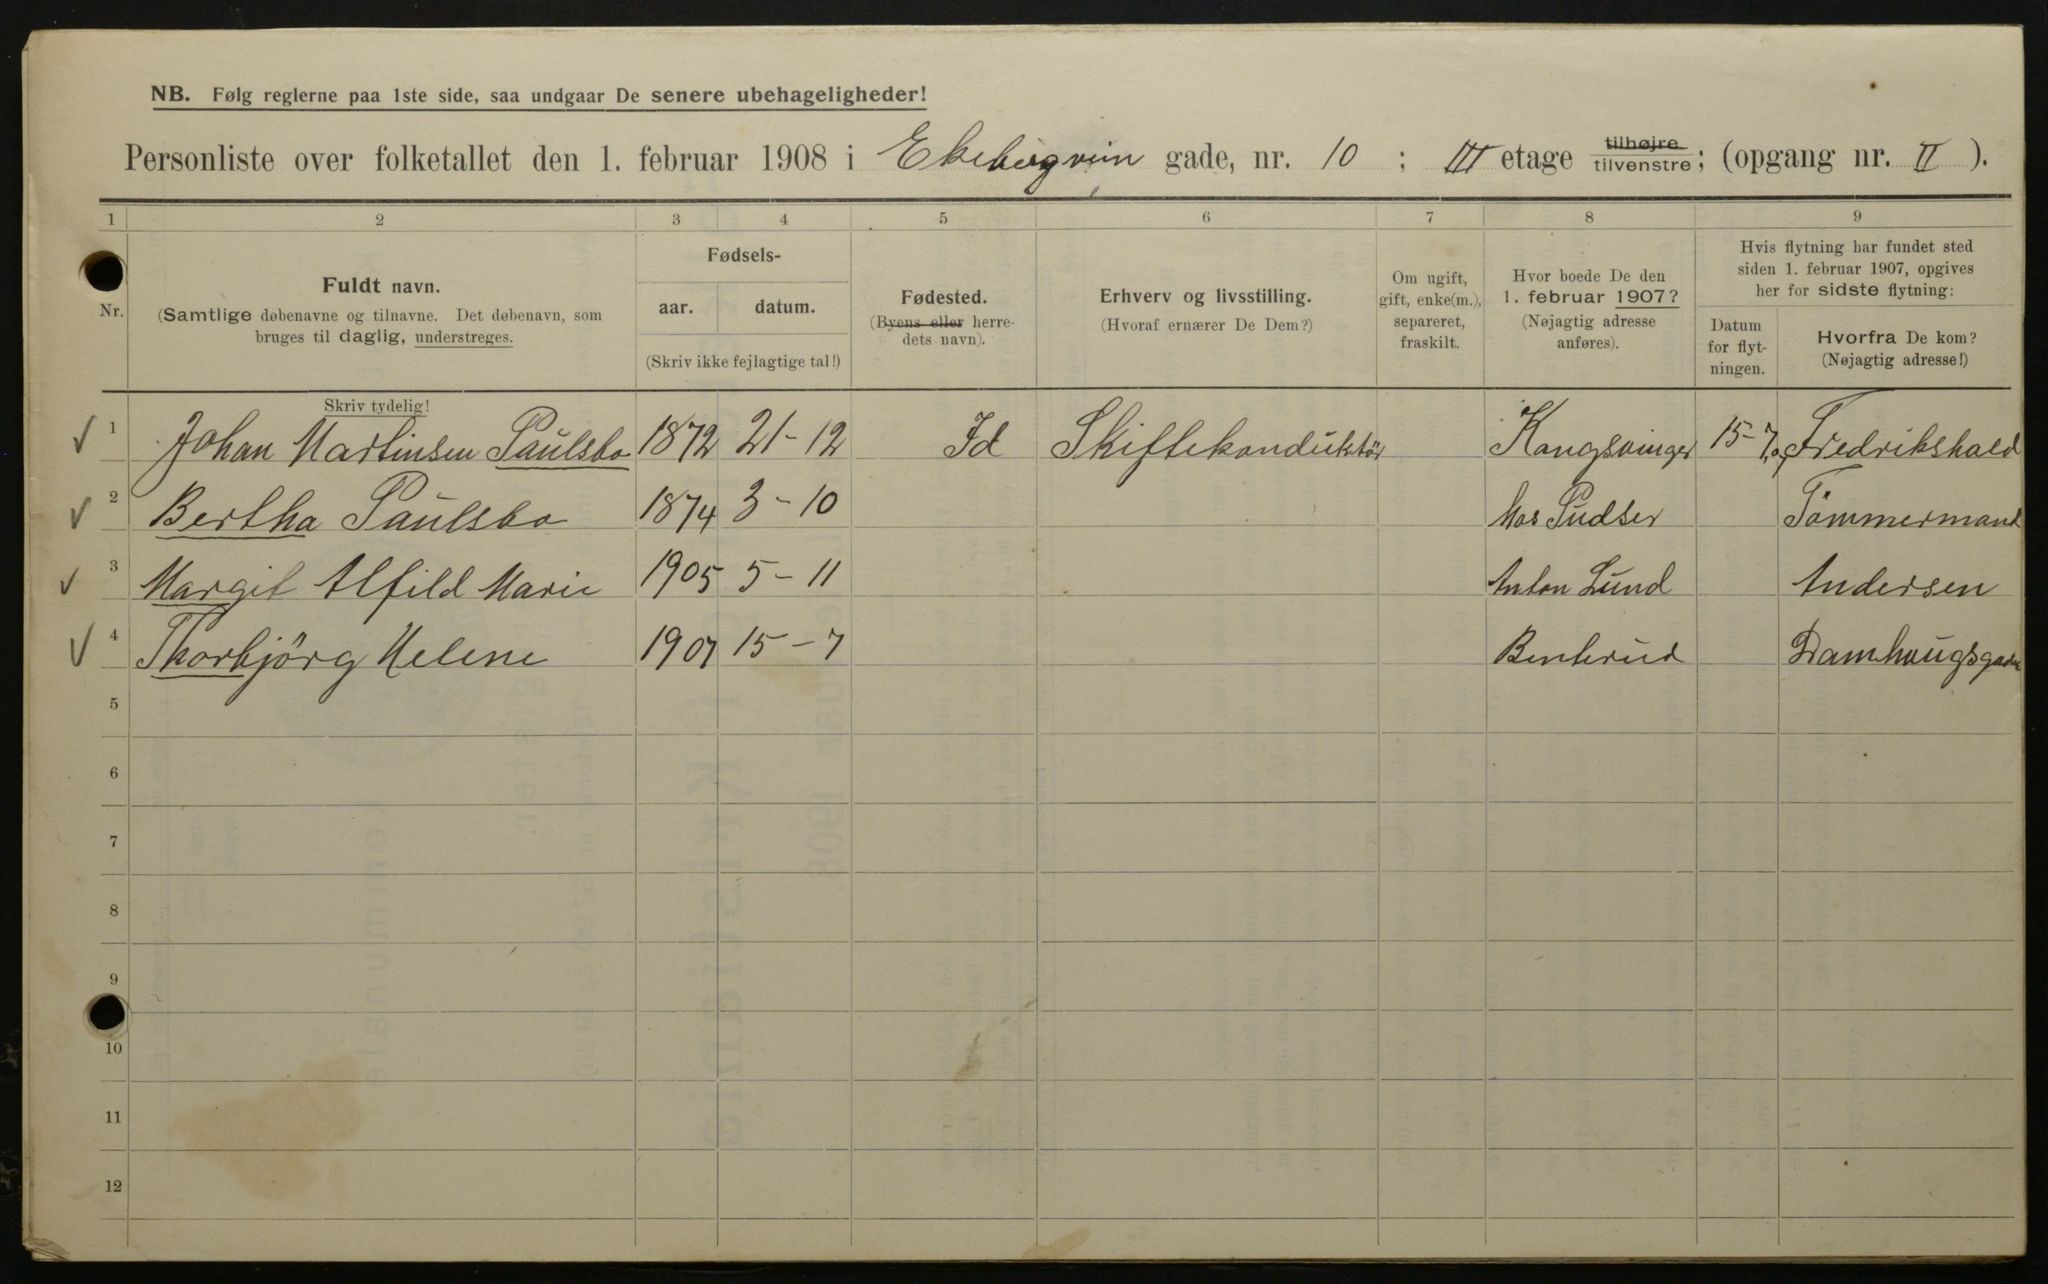 NB. Følg reglerne paa 1ste side, saa undgaar De senere ubehageligheder!
Personliste over folketallet den 1. februar 1908 i Ekebergveien gade, nr. 10 ; III etage tilhøjre tilvenstre; (opgang nr. II ).
1 2 3 4 5 6 7 8 9
Nr.
Fuldt navn.
(Samtlige døbenavne og tilnavne. Det døbenavn, som
bruges til daglig, understreges.
Skriv tydelig!
Fødsels-
aar. datum.
(Skriv ikke fejlagtige tal!)
Fødested.
(Byens eller herre-
dets navn).
Erhverv og livsstilling.
(Hvoraf ernærer De Dem?)
Om ugift,
gift, enke(m.),
separeret,
fraskilt.
Hvor boede De den
1. februar 1907?
(Nøjagtig adresse
anføres).
Hvis flytning har fundet sted
siden 1. februar 1907, opgives
her for sidste flytning:
Datum
for flyt-
ningen.
Hvorfra De kom?
(Nøjagtig adresse!)
1 Johan Martinsen Paulsbo 1872 21-12 Id Skiftekonduktör Kongsvinger 15-7 Fredrikshald
2 Bertha Paulsbo 1874 3-10 hos Pudser Tömmermand
3 Margit Alfild Marie 1905 5-11 Anton Lund Andersen
4 Thorbjörg Helene 1907 15-7 Benterud Damhaugsgaden
5
6
7
8
9
10
11
12